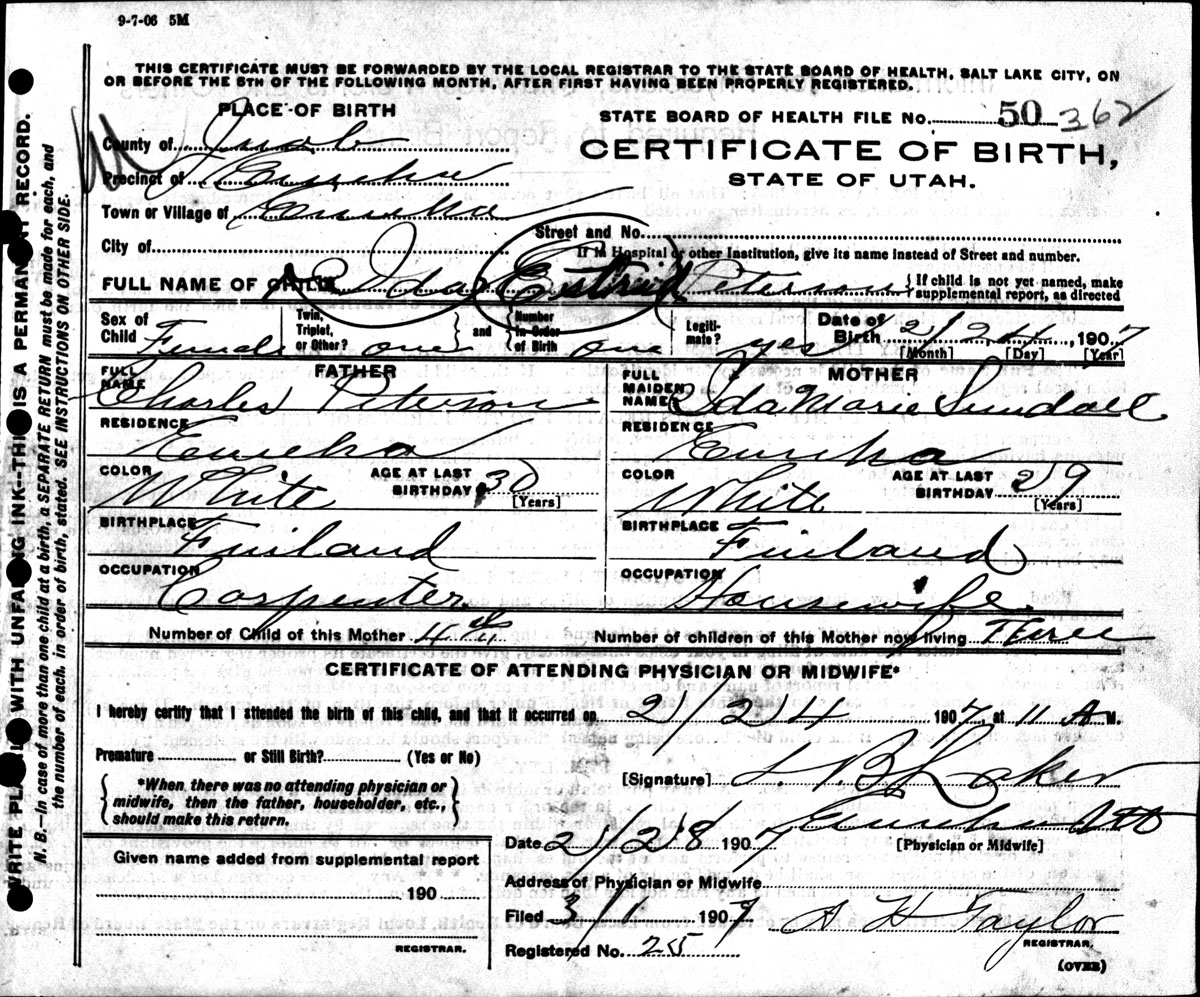 9-7-06 5M
THIS CERTIFICATE MUST BE FORWARDED BY THE LOCAL REGISTRAR TO THE STATE BOARD OF HEALTH, SALT LAKE CITY, ON
OR BEFORE THE 5TH OF THE FOLLOWING MONTH, AFTER FIRST HAVING BEEN PROPERLY REGISTERED.
PLACE OF BIRTH
STATE BOARD OF HEALTH FILE No. 50 362
County of Juab
CERTIFICATE OF BIRTH,
STATE OF UTAH.
Precinct of Eureka
Town or Village of Eureka
Street and No.
City of
If in Hospital or other Institution, give its name instead of Street and number.
FULL NAME OF CHILD Ida Estrid Peterson { If child is not yet named, make supplemental report, as directed
Sex of Child Female Twin, Triplet, or Other? one } and { Number in Order of Birth one Legitimate? yes Date of Birth 2/24, 1907
[Month] [Day] [Year]
FATHER
MOTHER
FULL NAME Charles Peterson
FULL MAIDEN NAME Ida Marie Sundall
RESIDENCE Eureka
RESIDENCE Eureka
COLOR White AGE AT LAST BIRTHDAY 30 [Years]
COLOR White AGE AT LAST BIRTHDAY 29 [Years]
BIRTHPLACE Finland
BIRTHPLACE Finland
OCCUPATION Carpenter
OCCUPATION Housewife
Number of Child of this Mother 4th Number of children of this Mother now living Three
CERTIFICATE OF ATTENDING PHYSICIAN OR MIDWIFE*
I hereby certify that I attended the birth of this child, and that it occurred on 2/24 1907, at 11 A M.
Premature or Still Birth? (Yes or No)
[Signature] B Laker
{ *When there was no attending physician or midwife, then the father, householder, etc., should make this return. }
Eureka Utah
Date 2/28 1907 [Physician or Midwife]
Given name added from supplemental report
190
REGISTRAR.
Address of Physician or Midwife
Filed 3/1 1907 A H Taylor
REGISTRAR.
Registered No. 25
(OVER)
WRITE PLAINLY WITH UNFADING INK—THIS IS A PERMANENT RECORD.
N. B.—In case of more than one child at a birth, a SEPARATE RETURN must be made for each, and
the number of each, in order of birth, stated. SEE INSTRUCTIONS ON OTHER SIDE.